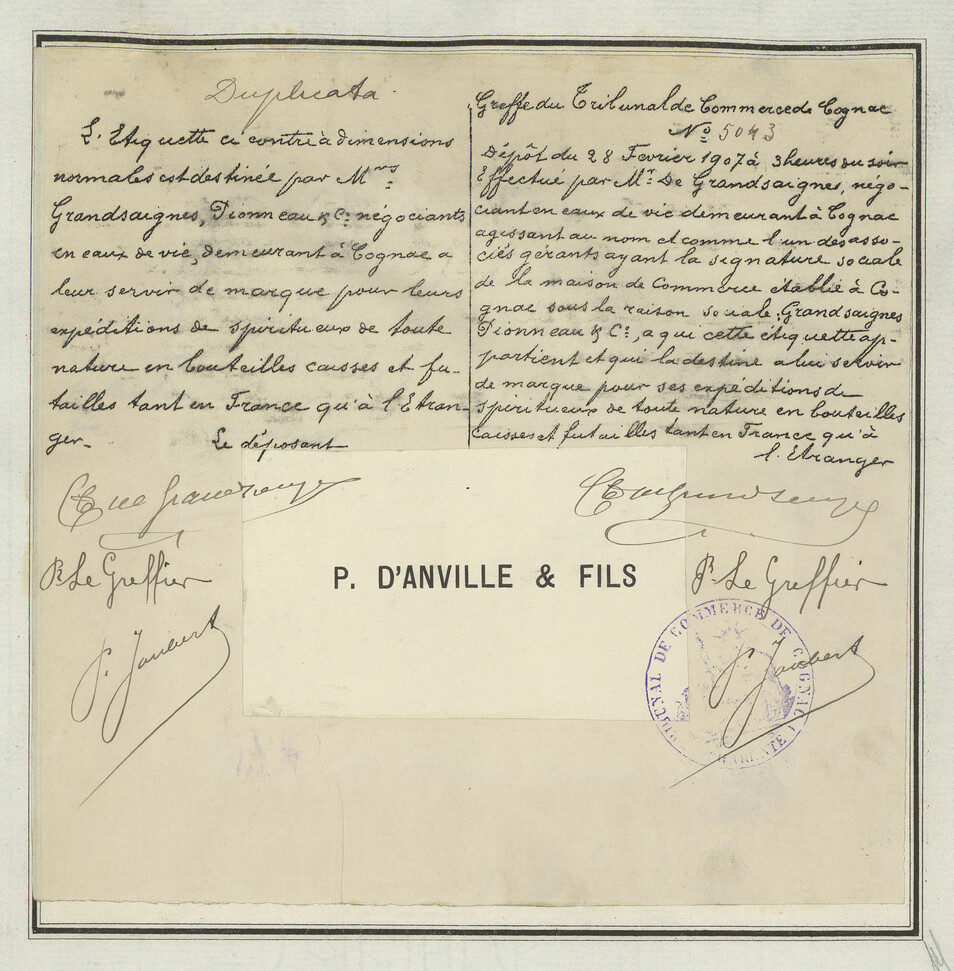 Duplicata.
L'Etiquette ci contre à dimensions
normales est destinée par Mrs
Grandsaignes, Pionneau & Cie négociants
en eaux de vie, demeurant à Cognac a
leur servir de marque pour leurs
expéditions de spiritueux de toute
nature en bouteilles caisses et fu-
tailles tant en France qu'à l'Etran-
ger.
Le déposant
Pr Le Greffier
P. Joubert
Greffe du Tribunal de Commerce de Cognac
No 5043
Dépôt du 28 Fevrier 1907 à 3 heures du soir
Effectué par Mr De Grandsaignes, négo-
ciant en eaux de vie demeurant à Cognac
agissant au nom et comme l'un des asso-
ciés gérants ayant la signature sociale
de la maison de Commerce établie à Co-
gnac sous la raison sociale: Grandsaignes
Pionneau & Cie, a qui cette étiquette ap-
partient et qui la destine a lui servir
de marque pour ses expéditions de
spiritueux de toute nature en bouteilles
caisses et futailles tant en France qu'à
l'Etranger
P. D'ANVILLE & FILS
Pr Le Greffier
P. Joubert
TRIBUNAL DE COMMERCE DE COGNAC
(CHARENTE)